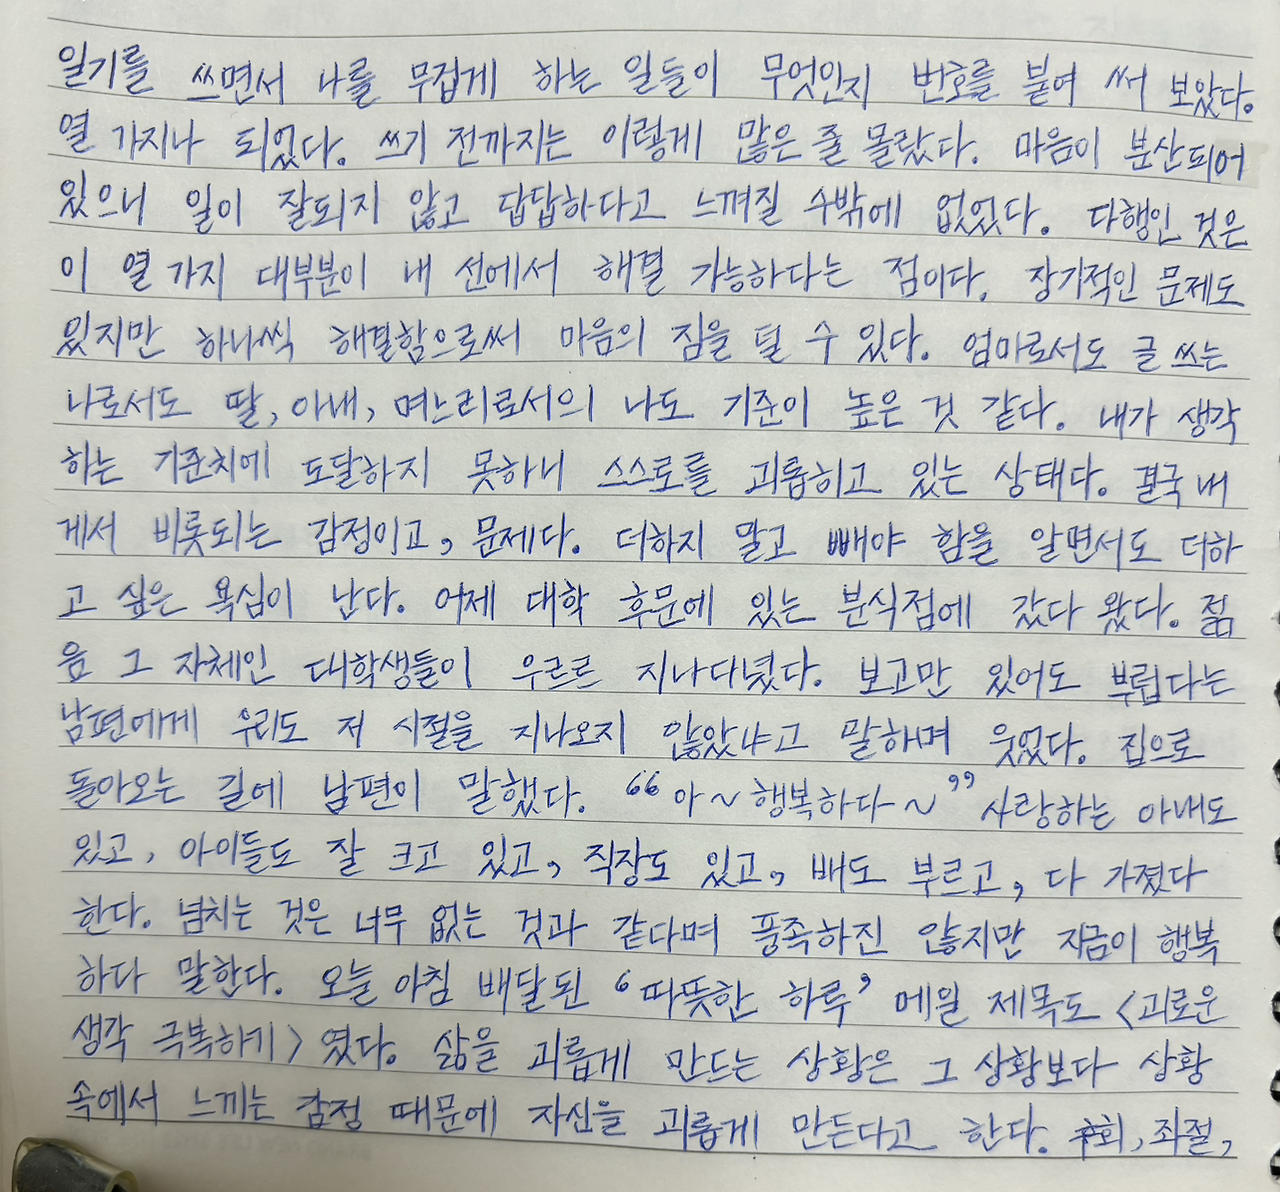 일기를 쓰면서 나를 무겁게 하는 일들이 무엇인지 번호를 붙여 써 보았다.
열 가지나 되었다. 쓰기 전까지는 이렇게 많은 줄 몰랐다. 마음이 분산되어
있으니 일이 잘되지 않고 답답하다고 느껴질 수밖에 없었다. 다행인 것은
이 열 가지 대부분이 내 선에서 해결 가능하다는 점이다. 장기적인 문제도
있지만 하나씩 해결함으로써 마음의 짐을 덜 수 있다. 엄마로서도 글 쓰는
나로서도 딸, 아내, 며느리로서의 나도 기준이 높은 것 같다. 내가 생각
하는 기준치에 도달하지 못하니 스스로를 괴롭히고 있는 상태다. 결국 내
게서 비롯되는 감정이고, 문제다. 더하지 말고 빼야 함을 알면서도 더하
고 싶은 욕심이 난다. 어제 대학 후문에 있는 분식점에 갔다 왔다. 젊
음 그 자체인 대학생들이 우르르 지나다녔다. 보고만 있어도 부럽다는
남편에게 우리도 저 시절을 지나오지 않았냐고 말하며 웃었다. 집으로
돌아오는 길에 남편이 말했다. “아~ 행복하다~” 사랑하는 아내도
있고, 아이들도 잘 크고 있고, 직장도 있고, 배도 부르고, 다 가졌다
한다. 넘치는 것은 너무 없는 것과 같다며 풍족하진 않지만 지금이 행복
하다 말한다. 오늘 아침 배달된 ‘따뜻한 하루’ 메일 제목도 <괴로운
생각 극복하기> 였다. 삶을 괴롭게 만드는 상황은 그 상황보다 상황
속에서 느끼는 감정 때문에 자신을 괴롭게 만든다고 한다. 좌절,